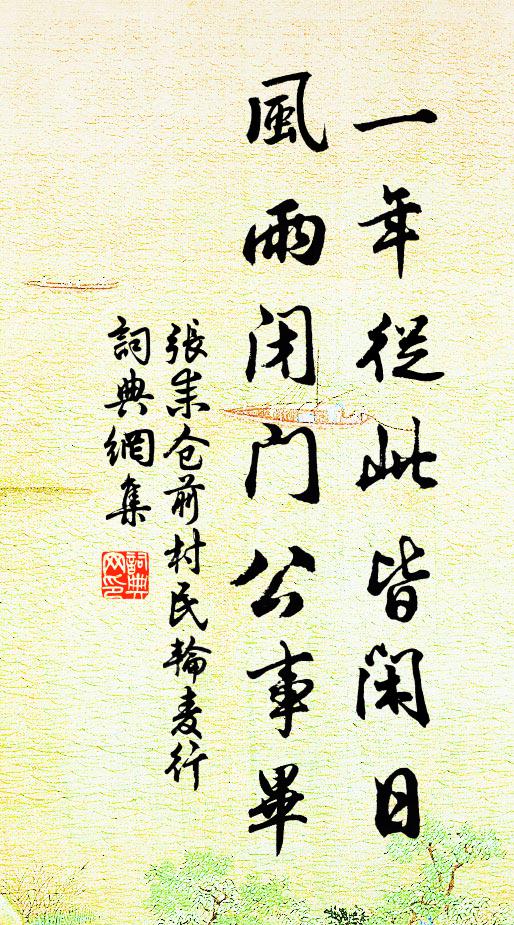 一年從此皆閑日
風雨閉門公事畢
張耒仓前村民輪麦行
詞典網集
詞典网印